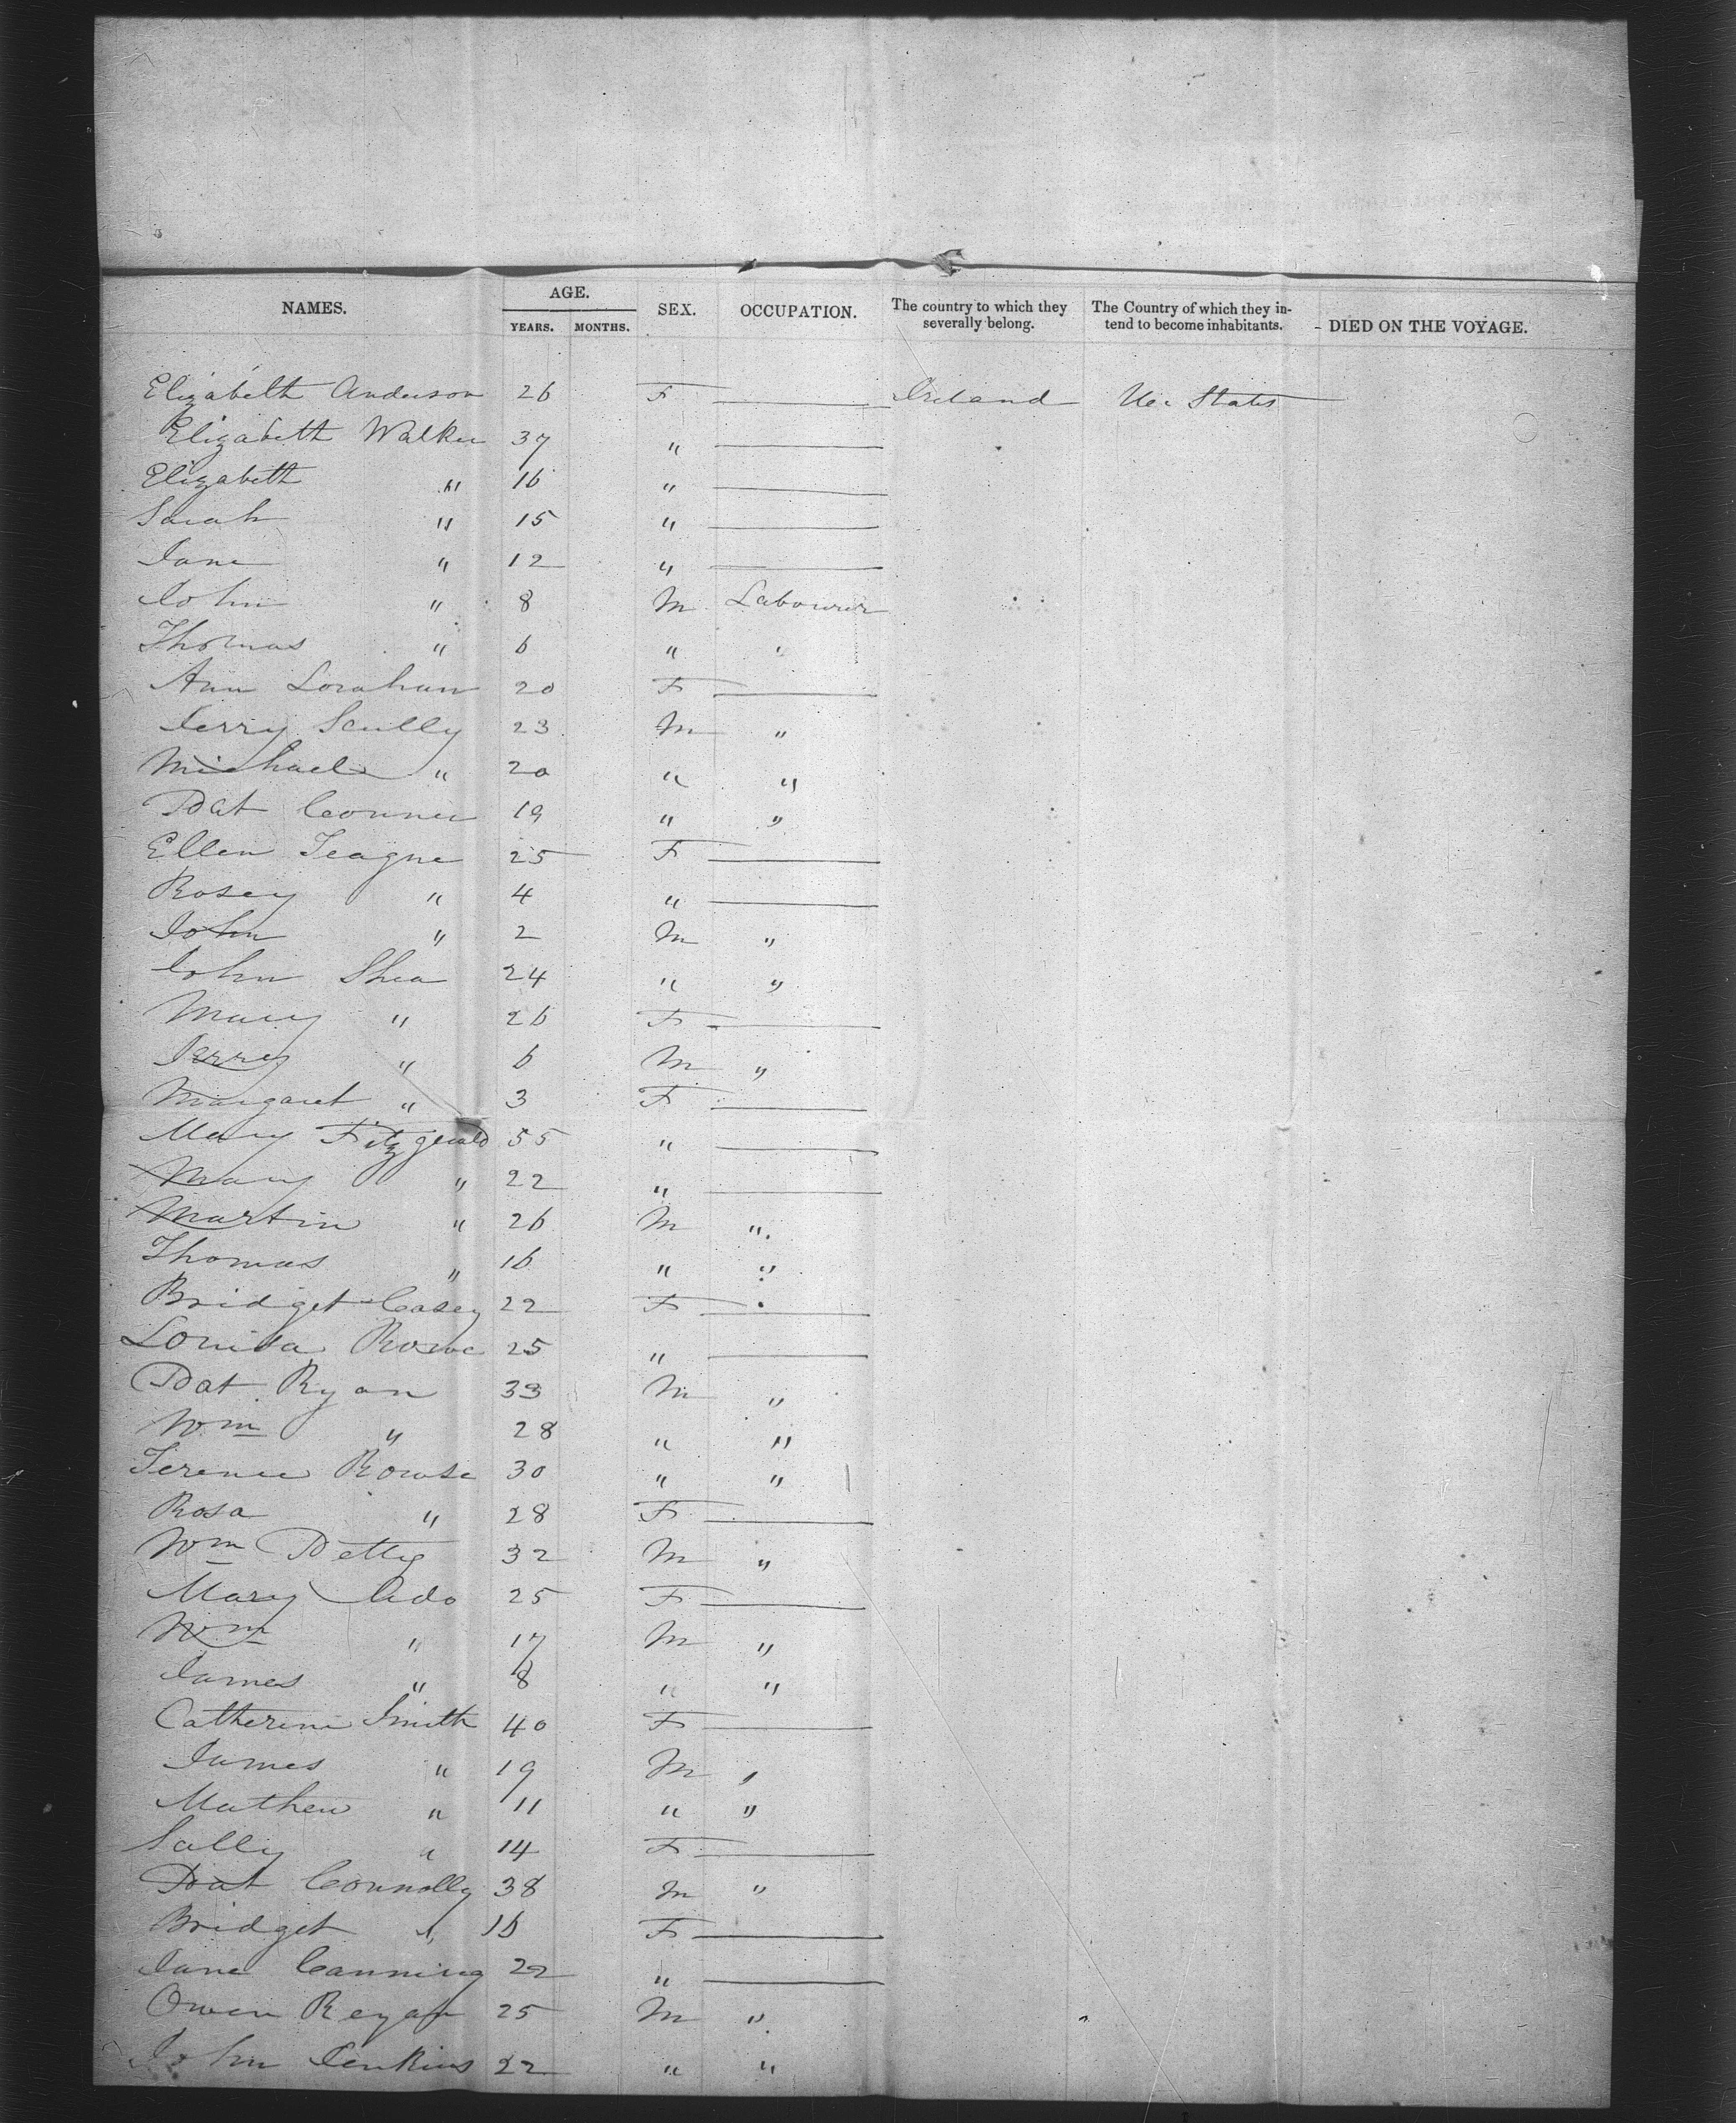 NAMES. AGE. SEX. OCCUPATION. The country to which they severally belong. The Country of which they intend to become inhabitants. DIED ON THE VOYAGE.
YEARS. MONTHS.
Elizabeth Anderson 26 F —— Ireland Ud. States
Elizabeth Walker 37 " ——
Elizabeth " 16 " ——
Sarah " 15 " ——
Jane " 12 " ——
John " 8 M Labourer
Thomas " 6 " "
Ann Lorahan 20 F ——
Jerry Scully 23 M "
Michael " 20 " "
Pat Conner 19 " "
Ellen Teague 25 F ——
Rosey " 4 " ——
John " 2 M "
John Shea 24 " "
Mary " 26 F ——
Jerry " 6 M "
Margaret " 3 F ——
Mary Fitzgerald 55 " ——
Mary " 22 " ——
Martin " 26 M "
Thomas " 16 " "
Bridget Casey 22 F ——
Louisa Rowe 25 " ——
Pat Ryan 33 M "
Wm " 28 " "
Terence Rowse 30 " "
Rosa " 28 F ——
Wm Petty 32 M "
Mary Ado 25 F ——
Wm " 17 M "
James " 8 " "
Catherine Smith 40 F ——
James " 19 M "
Mathew " 11 " "
Sally " 14 F ——
Pat Connolly 38 M "
Bridget " 16 F ——
Jane Canning 22 " ——
Owen Regan 25 M "
John Jenkins 22 " "